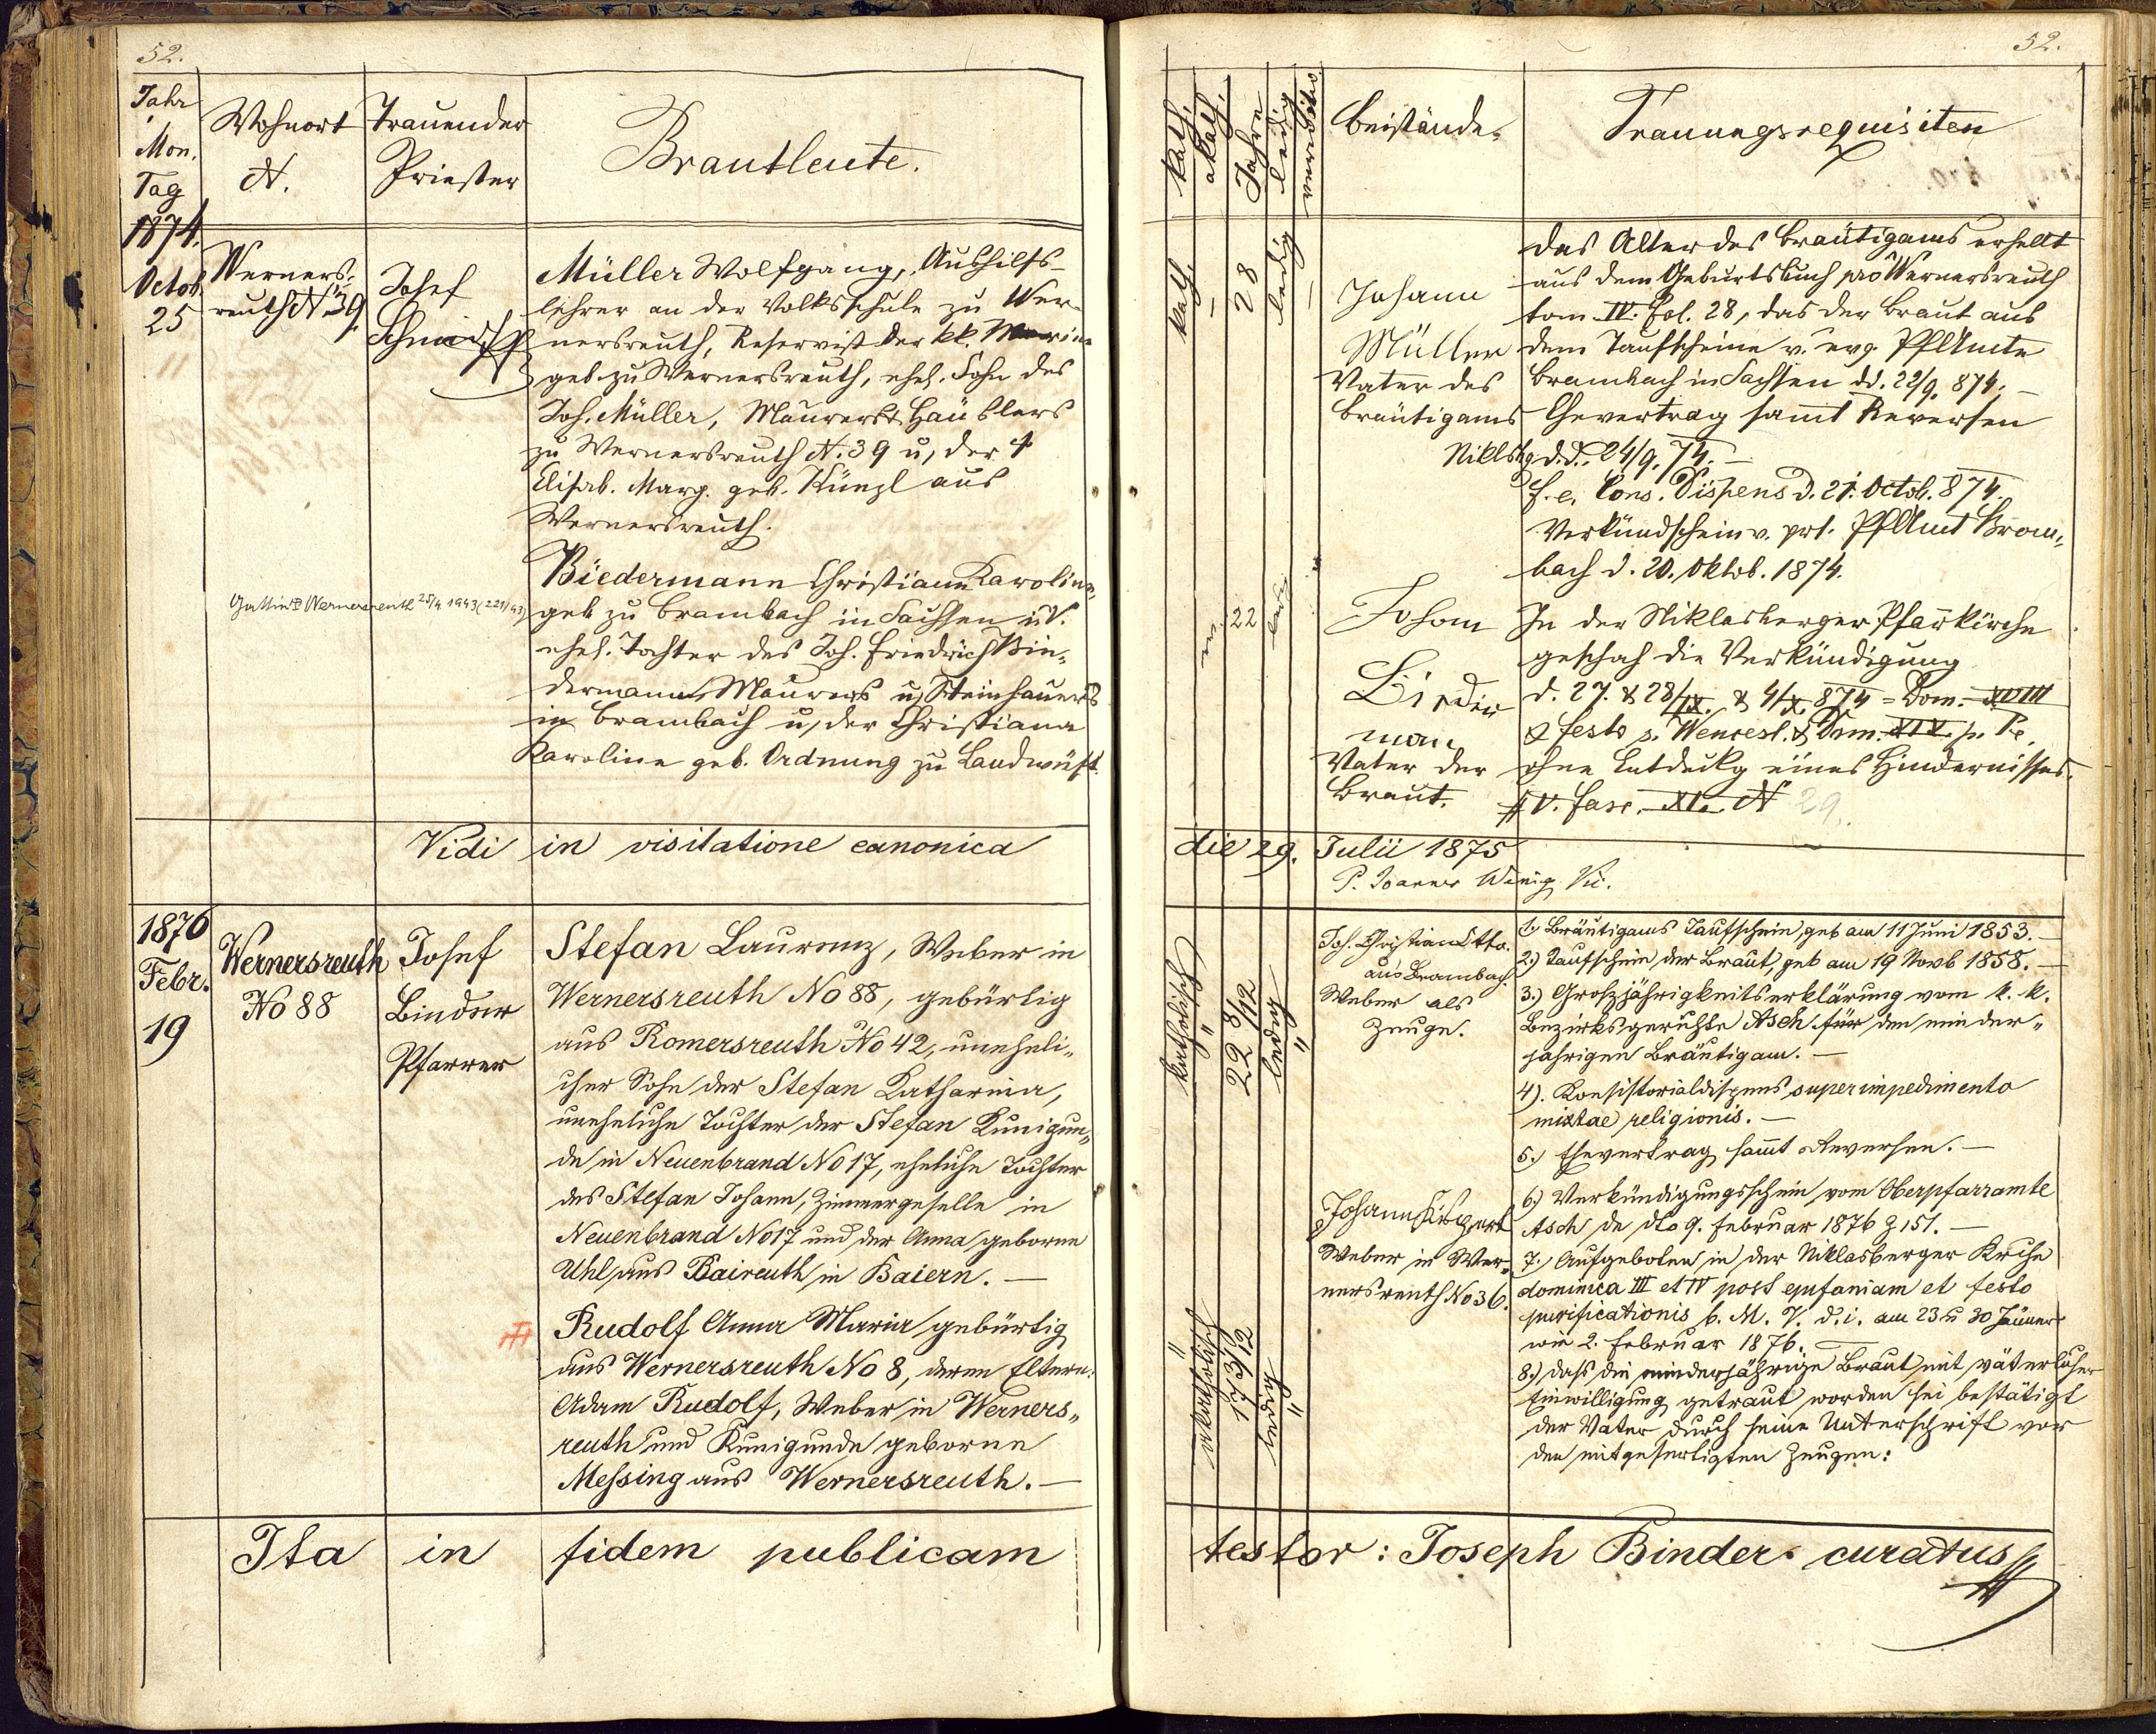 52.
Jahr
Mon.
Tag
Wohnort
N.
Trauender
Priester
Brautleute.
1874.
Octob.
25
Werners-
reuth N. 39
Josef
Schmidt
Müller Wolfgang, Aushilfs-
lehrer an der Volksschule zu Wer-
nersreuth, Reservist der kk. Marine
geb. zu Wernersreuth, ehel. Sohn des
Joh. Müller, Maurers & Häuslers
zu Wernersreuth N. 39 u, der †
Elisab. Marg. geb. Künzl aus
Wernersreuth.
Biedermann Christiane Karoline,
geb zu Brambach in Sachsen
ehel. Tochter des Joh. Friedrich Bie-
dermann Maurers u, Steinhauers
in Brambach u, der Christiana
Karoline geb. Ordnung zu Landwüst.
Wernersreuth 25/4 1943 (221/43)
Vidi in visitatione canonica
1876
Febr.
19
Wernersreuth
No 88
Josef
Binder
Pfarrer
Stefan Laurenz, Weber in
Wernersreuth No 88, gebürtig
aus Romersreuth No 42, uneheli-
cher Sohn der Stefan Katharina,
uneheliche Tochter der Stefan Kunigun-
de in Neuenbrand No 17, eheliche Tochter
des Stefan Johann, Zimmergeselle in
Neuenbrand No 17 und der Anna geborne
Uhl aus Baireuth in Baiern. —
Rudolf Anna Maria gebürtig
aus Wernersreuth No 8, deren Eltern:
Adam Rudolf, Weber in Werners-
reuth und Kunigunde geborne
Messing aus Wernersreuth. —
Ita in fidem publicam
52.
kath.
akath.
Jahre
ledig
verwitw.
Beistände.
Trauungsrequisiten
kath.
28
ledig
Johann
Müller
Vater des
Bräutigams
Das Alter des Bräutigams erhellt
aus dem Geburtsbuch pro Wernersreuth
tom IV. Fol. 28, das der Braut aus
dem Taufscheine v. evg. PfAmte
Brambach in Sachsen dd. 22/9. 874. —
Ehevertrag samt Reversen
Niklsbg d.d. 24/9. 74. —
f. e. Cons. Dispens d. 21. Octob. 874.
Verkündschein v. prt. PfAmt Bram-
bach d. 20. Oktob. 1874.
22
Johan
Bieder
man
Vater der
Braut.
In der Niklasberger Pfarrkirche
geschah die Verkündigung
d. 27. & 28/IX. & 4/X. 874 = Dom. XVIII
& festo s. Wencesl. & Dom. XIX p. Pe.
ohne Entdeckg eines Hindernisses.
V. fasc. XI. N 29.
die 29. Julii 1875
P. Joannes Wenig Vic.
katholisch
22 8/12
ledig
Joh. Christian Otto.
aus Brambach.
Weber als
Zeuge.
1.) Bräutigams Taufschein, geb am 11 Juni 1853. —
2.) Taufschein der Braut, geb am 19 Novb 1858. —
3.) Großjährigkeitserklärung vom k. k.
Bezirksgerichte Asch für den minder-
jährigen Bräutigam. —
4). Konsistorialdispens super impedimento
mixtae religionis. —
5.) Ehevertrag samt Reversen. —
akatholisch
17 3/12
ledig
Johann
Weber in Wer-
nersreuth No 36.
6.) Verkündigungsschein vom Oberpfarramte
Asch de dto 9. Februar 1876 Z 151. —
7.) Aufgeboten in der Niklasberger Kirche
dominica III et IV post epifaniam et festo
purificationis b. M. V. d. i. am 23 u 30 Jänner
wie 2. Februar 1876. —
8.) Dass die minderjährige Braut mit väterlicher
Einwilligung getraut worden sei bestätigt
der Vater durch seine Unterschrift vor
den mitgefertigten Zeugen:
testor: Joseph Binder curatus